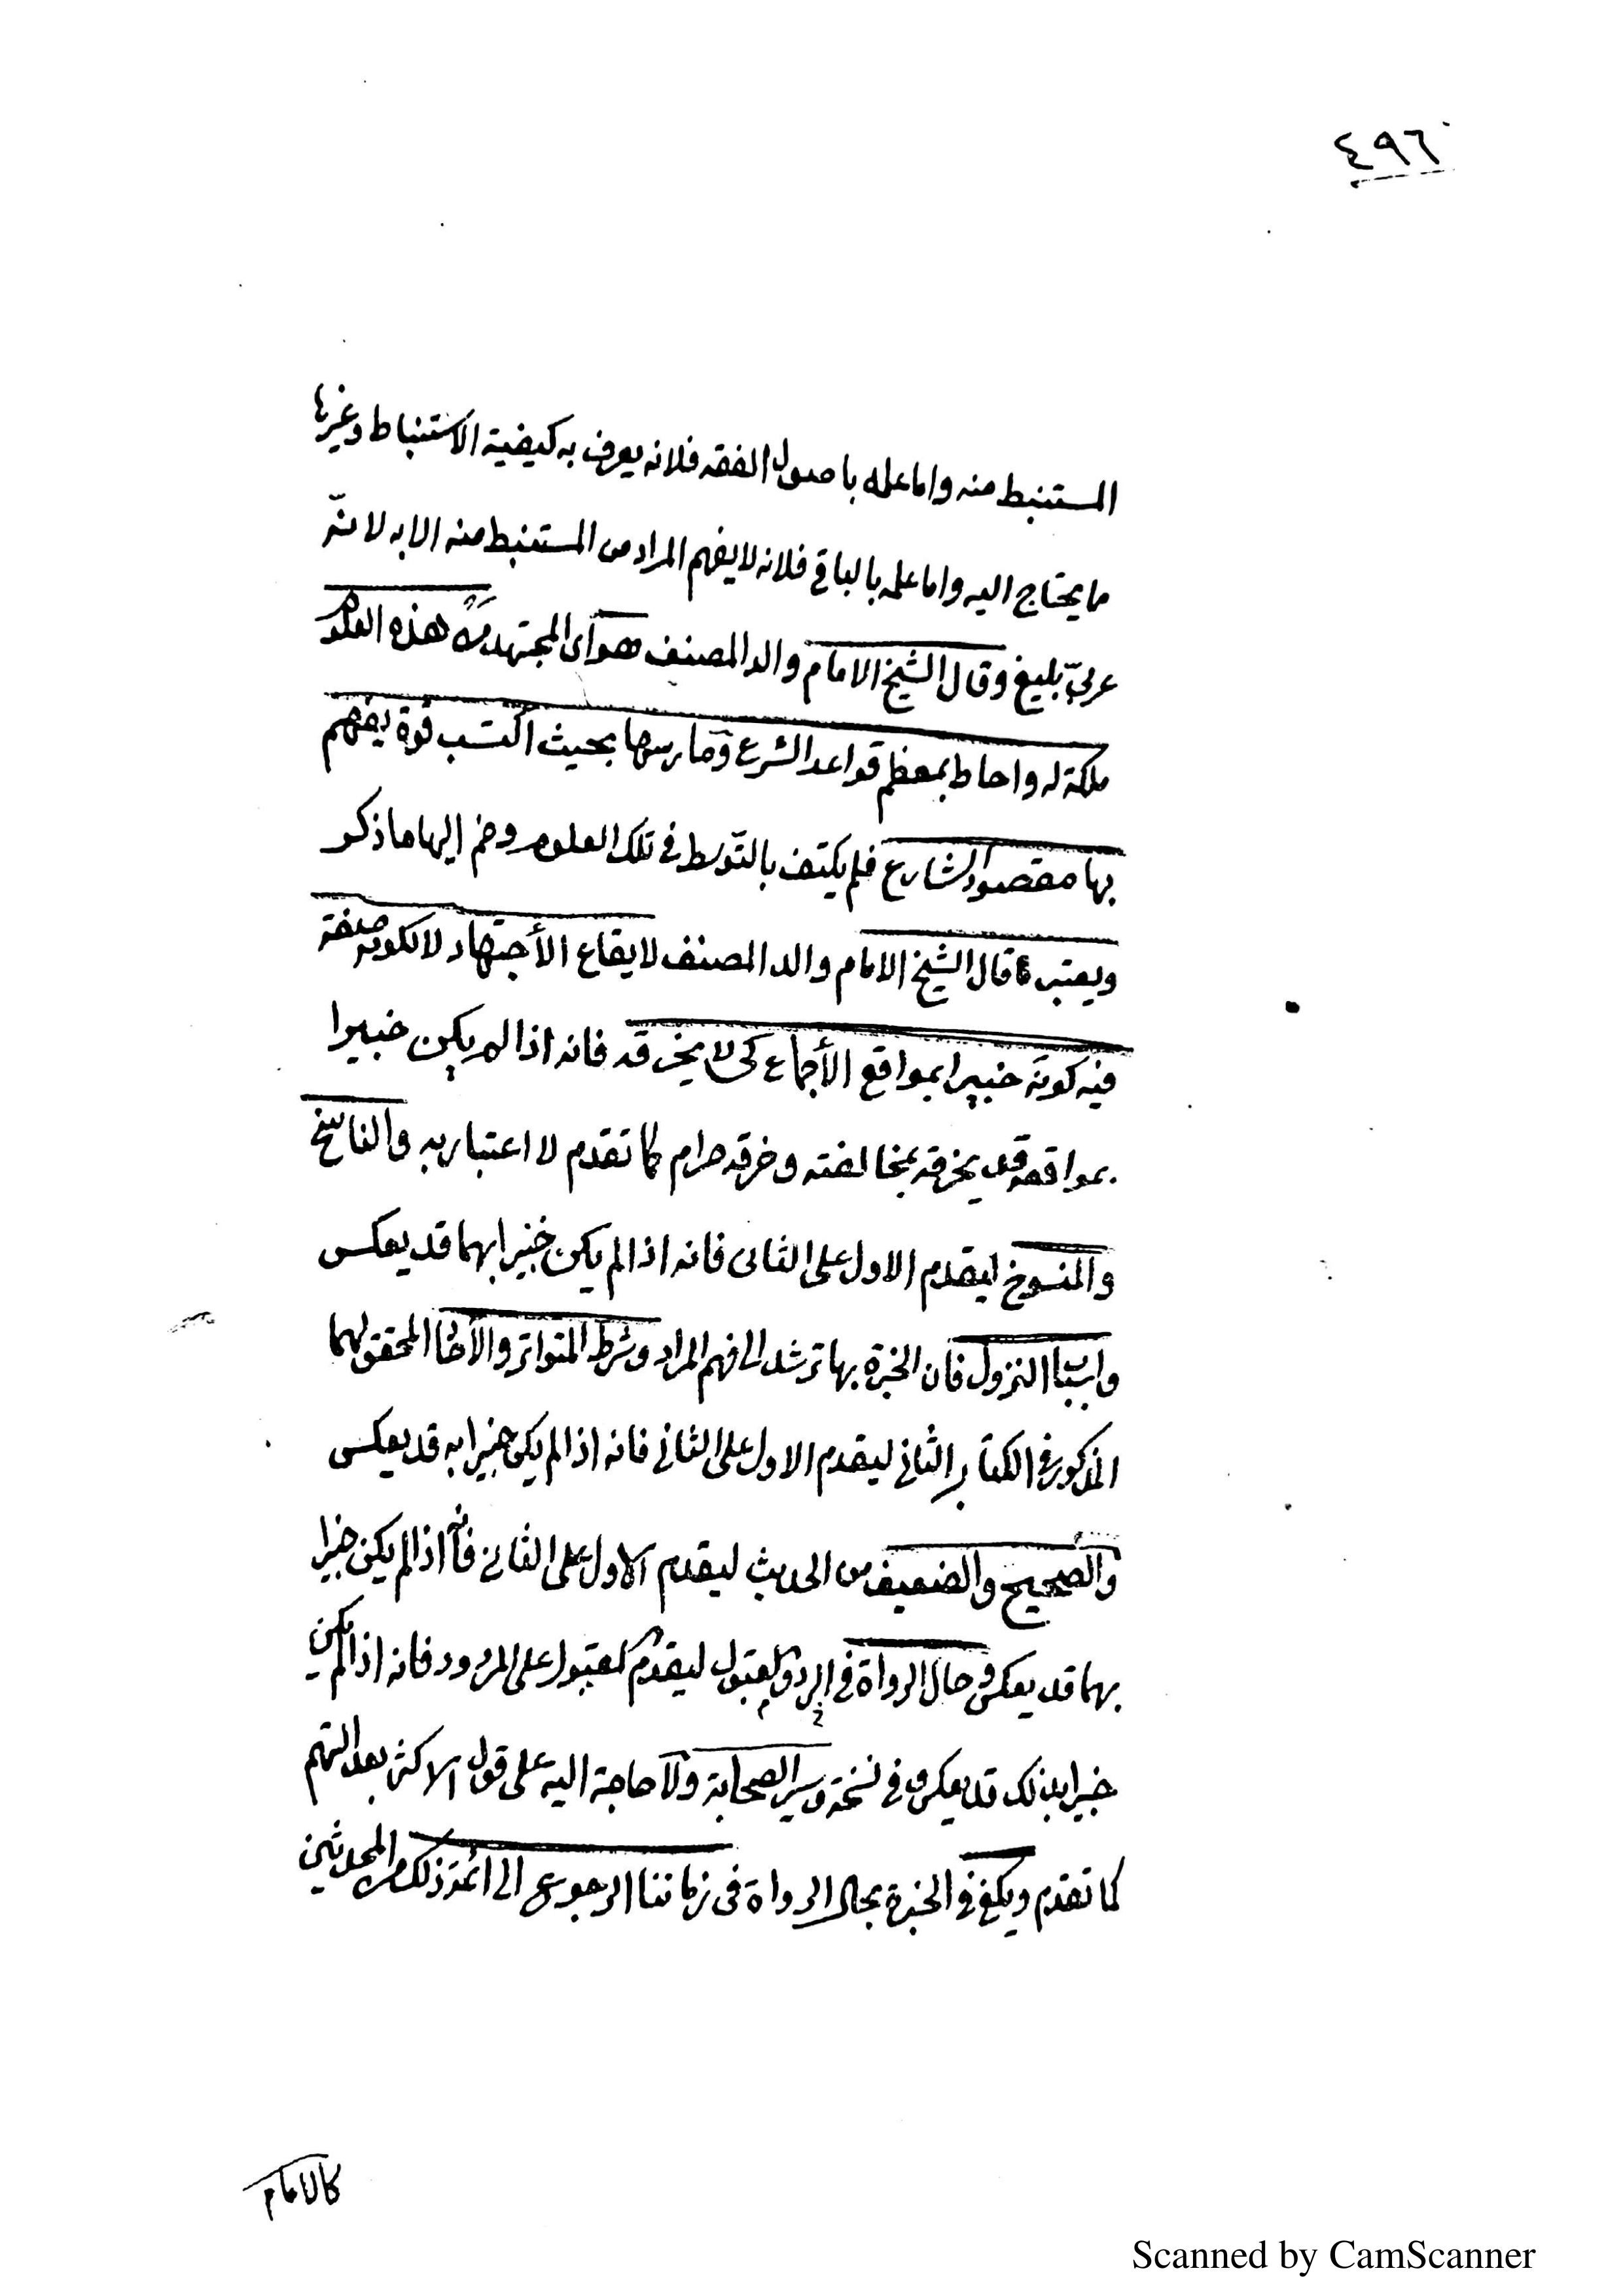 ٤٩٦
المستنبط منه واما علمه باصول الفقه فلانه يعرف به كيفية الاستنباط وغيرها
ما يحتاج اليه واما علمه بالباقي فلانه لا يفهم المراد من المستنبط منه الا به لانه
عربيّ بليغ وقال الشيخ الامام والد المصنف هو اى المجتهد من هذه العلوم
ملكة له واحاط بمعظم قواعد الشرع ومارسها بحيث اكتسب قوة يفهم
بها مقصود الشارع فلم يكتف بالتوسط في تلك العلوم وضم اليها ما ذكر
ويعتبر قال الشيخ الامام والد المصنف لايقاع الأجتهاد لا لكونه صفة
فيه كونه خبيرا بمواقع الأجماع كى لا يخرقه فانه اذا لم يكن خبيرا
بمواقعه قد يخرقه بمخالفته وخرقه حرام كما تقدم لا اعتبار به والناسخ
والمنسوخ ليقدم الاول على الثانى فانه اذا لم يكن خبيرا بهما قد يعكس
واسباب النزول فان الخبرة بها ترشد الى فهم المراد وشرط المتواتر والأحاد المحقق لهما
المذكور في الكتاب الثاني ليقدم الاول على الثاني فانه اذا لم يكن خبيرا به قد يعكس
والصحيح والضعيف من الحديث ليقدم الاول على الثاني فانه اذا لم يكن خبيرا
بهما قد يعكس وحال الرواة في الرد والقبول ليقدم المقبول على المردود فانه اذا لم يكن
خبيرا بذلك قد يعكس وفي نسخة وسير الصحابة ولا حاجة اليه على قول الاكثر بعدالتهم
كما تقدم ويكفي في الخبرة بحال الرواة فى زماننا الرجوع الى ائمة ذلك من المحدثين
كالامام
Scanned by CamScanner